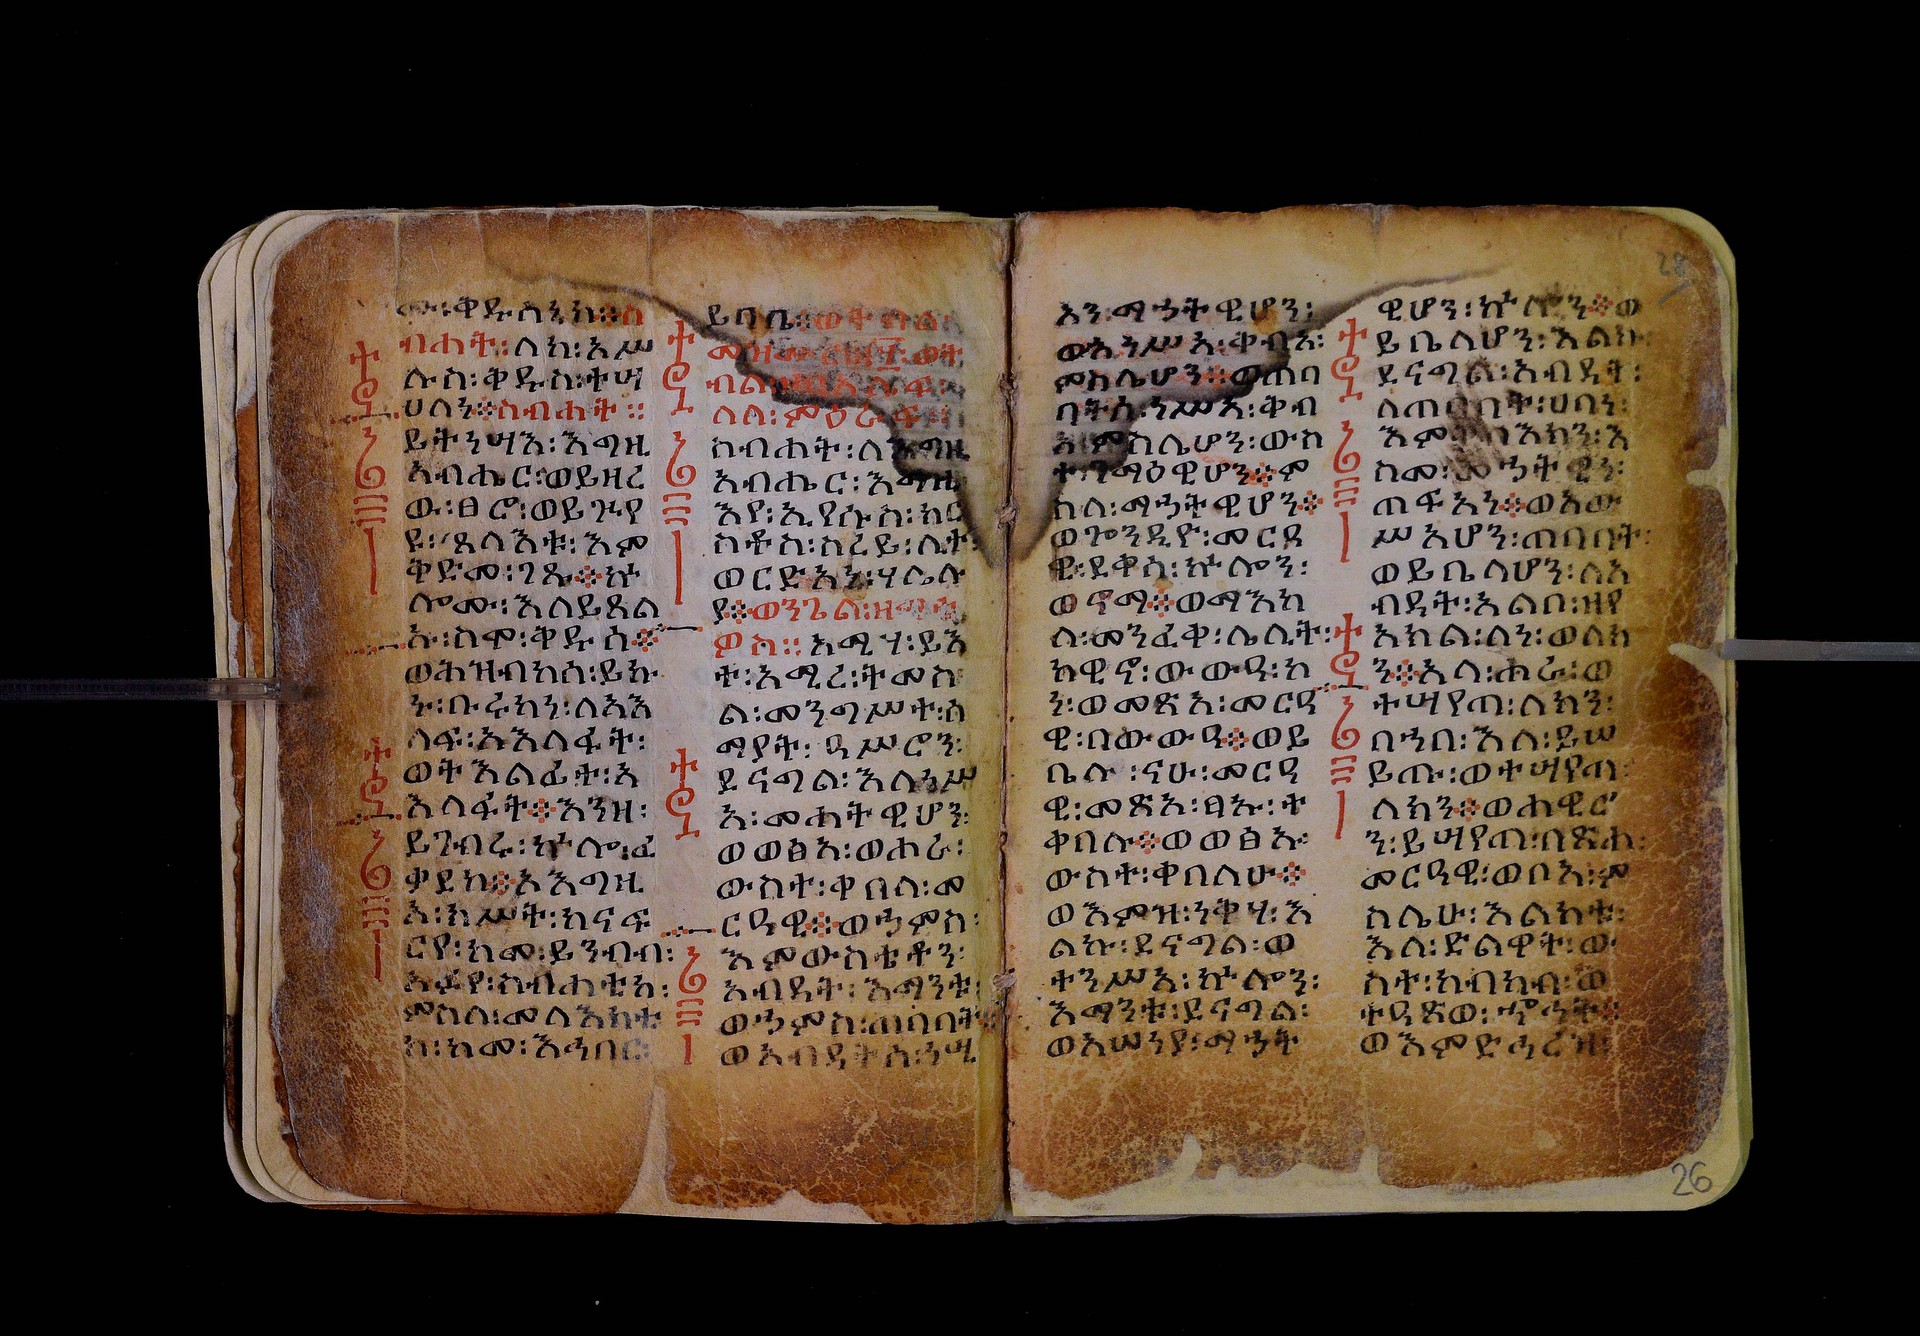 ቅዱስንከ። ስ
ብሐት፡ ለከ፡ አሥ
ሉስ፡ ቅዱስ፡ ተሣ
ሀለን። ስብሐት።
ይትነሣእ፡ እግዚ
አብሔር፡ ወይዘረ
ው፡ ፀሮ፡ ወይጕየ
ዩ፡ ጸላእቱ፡ እም
ቅድመ፡ ገጹ። ኵ
ሎሙ፡ እለይጸል
ኡ፡ ስሞ፡ ቅዱሰ።
ወሕዝብከሰ፡ ይኩ
ኑ፡ ቡሩካነ፡ ለአእ
ላፍ፡ አእላፋት፡
ወትእልፊተ፡ አ
እላፋት። እንዘ፡
ይገብሩ፡ ኵሎ፡ ፈ
ቃደከ። አእግዚ
አ፡ ክሥት፡ ከናፍ
ርየ፡ ከመ፡ ይንብብ፡
አፉየ፡ ስብሐቲከ፡
ምስለ፡ መላእክቲ
ከ፡ ከመ፡ እኅበር
ይባቤ። ወት
ብል
ለለ፡ ምዕራፍ፡
ስብሐት፡ ለእግዚ
አብሔር፡ እግዚ
እየ፡ ኢየሱስ፡ ክር
ስቶስ፡ ስረይ፡ ሊተ፡
ወርድአኒ፡ ሃሌሉ
ያ። ወንጌል፡ ዘማቴ
ዎስ። አሜሃ፡ ይእ
ተ፡ አሚረ፡ ትመስ
ል፡ መንግሥተ፡ ሰ
ማያት፡ ዓሥሮን፡
ደናግል፡ እለነሥ
አ፡ መሐትዊሆን፡
ወወፅአ፡ ወሐራ፡
ውስተ፡ ቀበላ፡ መ
ርዓዊ። ወኃምስ፡
እምውስቴቶን፡
አብዳት፡ እማንቱ፡
ወኃምስ፡ ጠባባት።
ወአብዳትሰ፡ ነሢ
እን፡ ማኅትዊሆን፡
ወኢነሥአ፡ ቅብአ፡
ምስሌሆን። ወጠባ
ባትሰ፡ ነሥአ፡ ቅብ
አ፡ ምስሌሆን፡ ውስ
ተ፡ ገማዕዊሆን። ም
ስለ፡ ማኅትዊሆን።
ወጐንዲዮ፡ መርዓ
ዊ፡ ደቀሳ፡ ኵሎን፡
ወኖማ። ወማእከ
ለ፡ መንፈቀ፡ ሌሊት፡
ከዊኖ፡ ውውዓ፡ ኮ
ነ፡ ወመጽአ፡ መርዓ
ዊ፡ በውውዓ። ወይ
ቤሉ፡ ናሁ፡ መርዓ
ዊ፡ መጽአ፡ ፃኡ፡ ተ
ቀበሉ። ወወፅኡ፡
ውስተ፡ ቀበላሁ።
ወእምዝ፡ ነቅሃ፡ እ
ልኩ፡ ደናግል፡ ወ
ተንሥአ፡ ኵሎን፡
እማንቱ፡ ደናግል፡
ወአሠነያ፡ ማኅት
ዊሆን፡ ኵሎን። ወ
ይቤላሆን፡ እልኩ፡
ደናግል፡ አብዳት፡
ለጠባባት፡ ሀባነ፡
እምቅብእክን፡ እ
ስመ፡ መኃትዊነ፡
ጠፍአን። ወአው
ሥአሆን፡ ጠባባት፡
ወይቤላሆን፡ ለአ
ብዳት፡ አልቦ፡ ዘየ
አክል፡ ለነ፡ ወለክ
ን። አላ፡ ሑራ፡ ወ
ተሣየጣ፡ ለክን፡
በኀበ፡ እለ፡ ይሠ
ይጡ፡ ወተሣየጣ፡
ለክን። ወሐዊሮ
ን፡ ይሣየጣ፡ በጽሐ፡
መርዓዊ፡ ወቦአ፡ ም
ስሌሁ፡ እልክቱ፡
እለ፡ ድልዋት፡ ው
ስተ፡ ከብካብ፡ ወ
ተዓጽወ፡ ኆኅት።
ወእምድኅረዝ፡
28
26